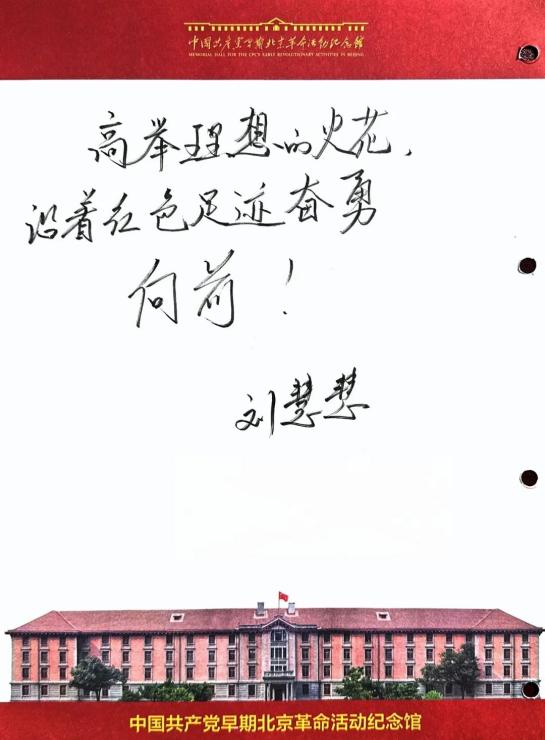 中国共产党早期北京革命活动纪念馆
MEMORIAL HALL FOR THE CPC'S EARLY REVOLUTIONARY ACTIVITIES IN BEIJING
高举理想的火花，
沿着红色足迹奋勇
向前！
刘慧慧
中国共产党早期北京革命活动纪念馆